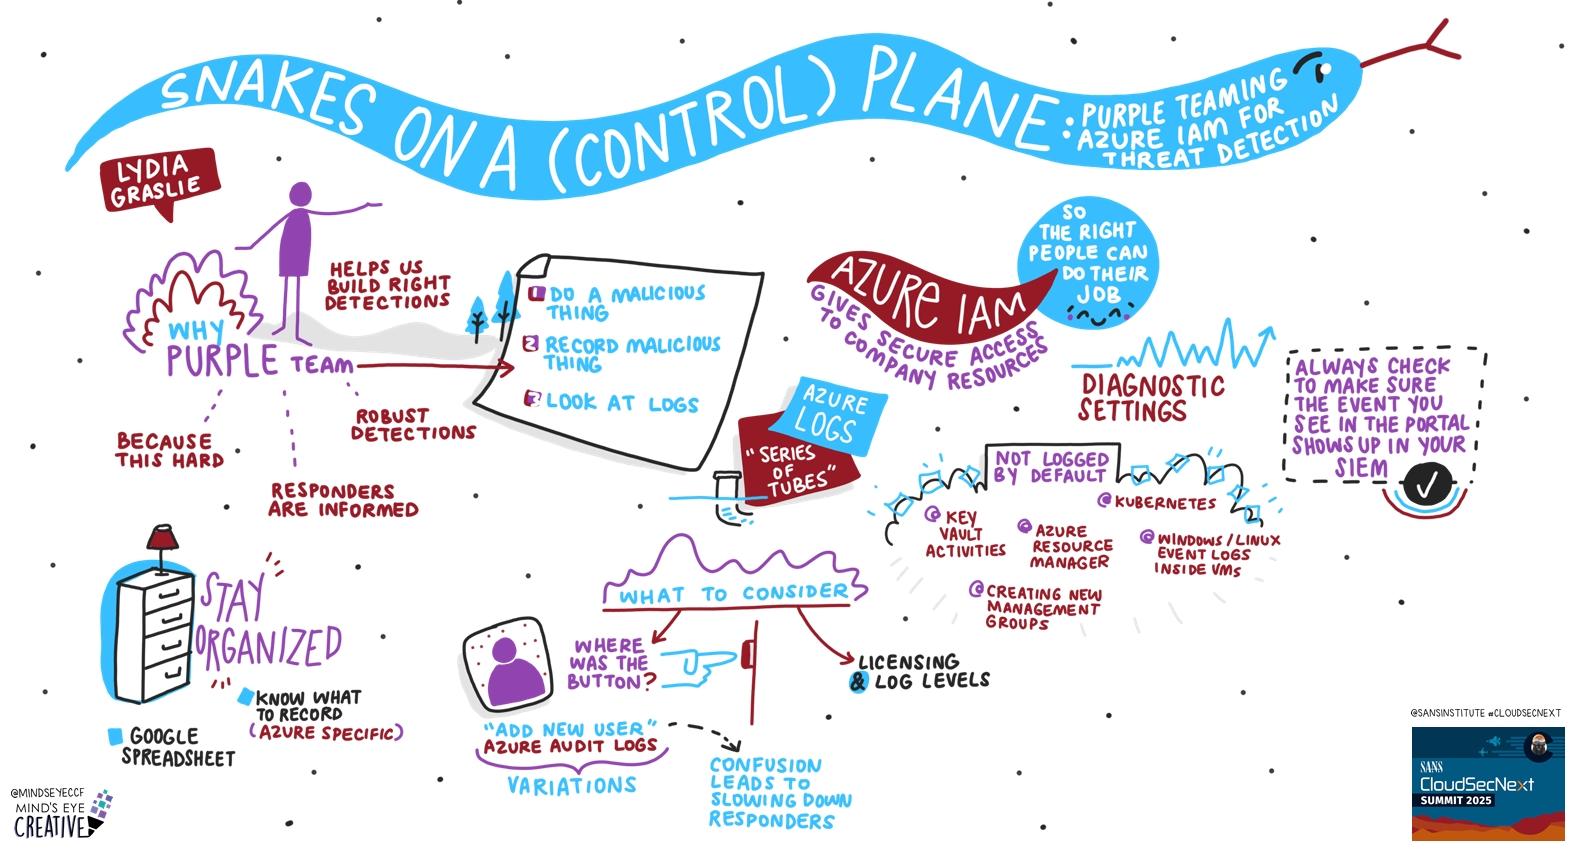 SNAKES ON A (CONTROL) PLANE:
PURPLE TEAMING
AZURE IAM FOR
THREAT DETECTION
LYDIA
GRASLIE
WHY
PURPLE TEAM
HELPS US
BUILD RIGHT
DETECTIONS
BECAUSE
THIS HARD
RESPONDERS
ARE INFORMED
ROBUST
DETECTIONS
1 DO A MALICIOUS
THING
2 RECORD MALICIOUS
THING
3 LOOK AT LOGS
AZURE IAM
GIVES SECURE ACCESS
TO COMPANY RESOURCES
SO
THE RIGHT
PEOPLE CAN
DO THEIR
JOB
AZURE
LOGS
"SERIES
OF
TUBES"
DIAGNOSTIC
SETTINGS
NOT LOGGED
BY DEFAULT
KEY
VAULT
ACTIVITIES
AZURE
RESOURCE
MANAGER
KUBERNETES
WINDOWS/LINUX
EVENT LOGS
INSIDE VMS
CREATING NEW
MANAGEMENT
GROUPS
ALWAYS CHECK
TO MAKE SURE
THE EVENT YOU
SEE IN THE PORTAL
SHOWS UP IN YOUR
SIEM
STAY
ORGANIZED
KNOW WHAT
TO RECORD
(AZURE SPECIFIC)
GOOGLE
SPREADSHEET
WHAT TO CONSIDER
WHERE
WAS THE
BUTTON?
LICENSING
& LOG LEVELS
"ADD NEW USER"
AZURE AUDIT LOGS
VARIATIONS
CONFUSION
LEADS TO
SLOWING DOWN
RESPONDERS
@MINDSEYECCF
MIND'S EYE
CREATIVE
@SANSINSTITUTE #CLOUDSECNEXT
SANS
CloudSecNext
SUMMIT 2025